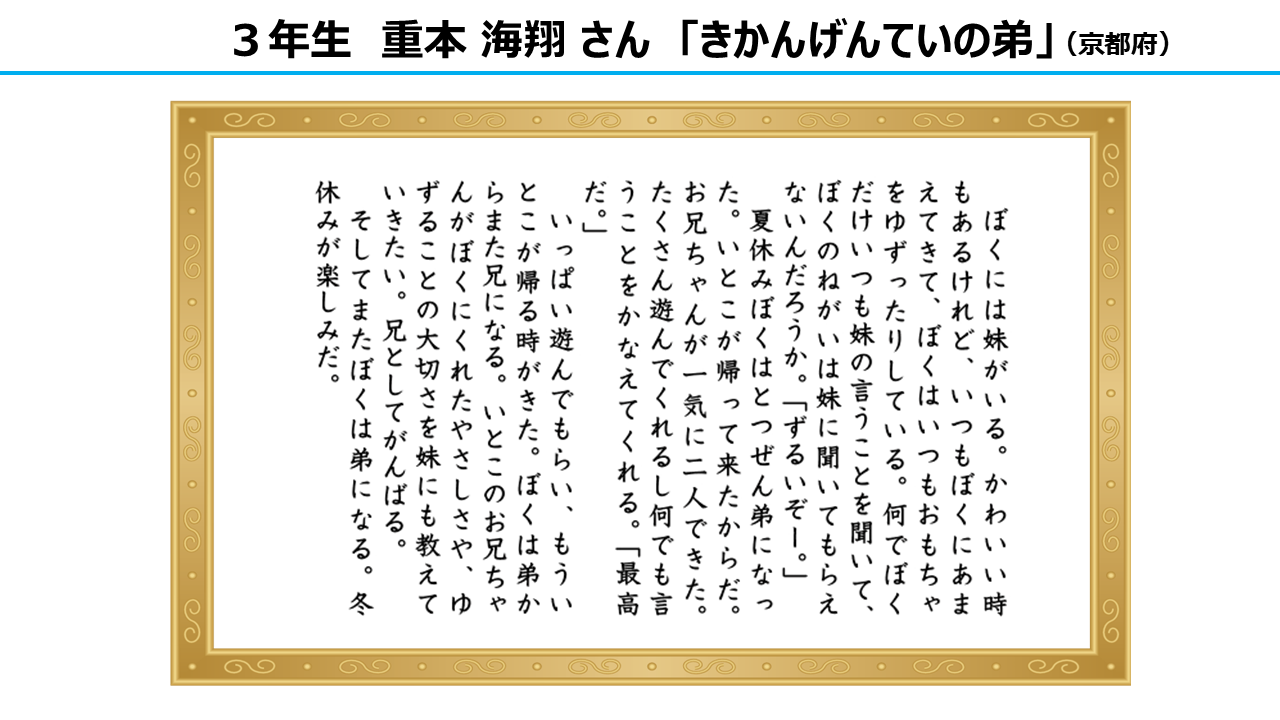 ３年生 重本 海翔 さん 「きかんげんていの弟」（京都府）
ぼくには妹がいる。かわいい時
もあるけれど、いつもぼくにあま
えてきて、ぼくはいつもおもちゃ
をゆずったりしている。何でぼく
だけいつも妹の言うことを聞いて、
ぼくのねがいは妹に聞いてもらえ
ないんだろうか。「ずるいぞー。」
夏休みぼくはとつぜん弟になっ
た。いとこが帰って来たからだ。
お兄ちゃんが一気に二人できた。
たくさん遊んでくれるし何でも言
うことをかなえてくれる。「最高
だ。」
いっぱい遊んでもらい、もうい
とこが帰る時がきた。ぼくは弟か
らまた兄になる。いとこのお兄ちゃ
んがぼくにくれたやさしさや、ゆ
ずることの大切さを妹にも教えて
いきたい。兄としてがんばる。
そしてまたぼくは弟になる。冬
休みが楽しみだ。